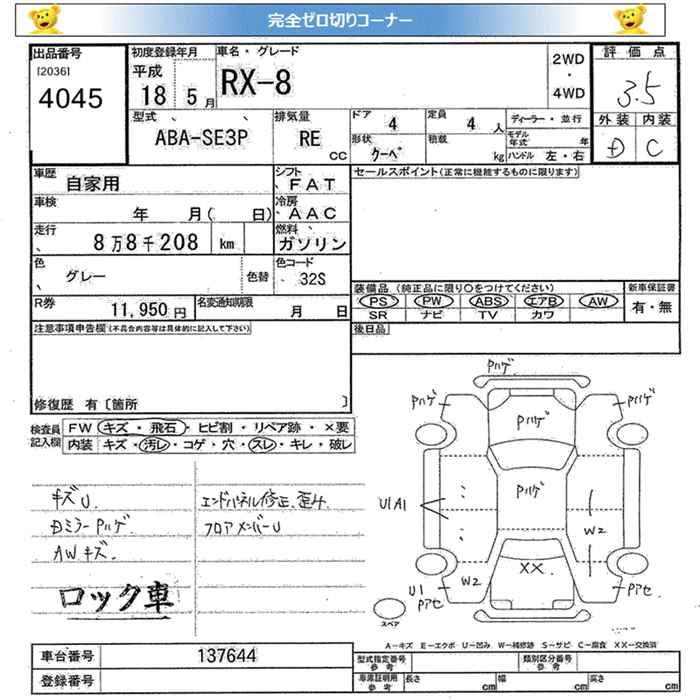 完全ゼロ切りコーナー
出品番号
[2036]
4045
初度登録年月
平成
18 5月
車名・グレード
RX-8
2WD
・
4WD
評価点
3.5
外装 内装
D C
型式
ABA-SE3P
排気量
RE
CC
ドア 4
定員 4 人
形状 クーペ
積載 kg
ディーラー・並行
モデル年式 年
ハンドル 左・右
車歴
自家用
シフト
FAT
車検
年 月( 日)
冷房
AAC
走行
8万8千208 km
燃料
ガソリン
色
グレー
色替
色コード
32S
R券
11,950円
名変通知期限
月 日
セールスポイント(正常に機能するものに限ります)
装備品(純正品に限り○をつけてください)
PS PW ABS エアB AW
SR ナビ TV カワ
新車保証書
有・無
後日品
注意事項申告欄(不具合内容等は具体的に記入して下さい)
修復歴 有〔箇所 〕
検査員記入欄
FW キズ・飛石・ヒビ割・リペア跡・×要
内装 キズ・汚レ・コゲ・穴・スレ・キレ・破レ
キズU
Dミラー Pハゲ
AWキズ.
ロック車
エンドパネル修正、歪み.
フロアメンバーU
Pハゲ
Pハゲ
Pハゲ
Pハゲ
Pハゲ
U1A1
W2
W2
XX
U1
Pアセ
Pアセ
スペア
A-キズ E-エクボ U-凹み W-補修跡 S-サビ C-腐食 XX-交換済
車台番号
137644
登録番号
型式指定番号
参考
類別区分番号
参考
車庫証明用
参考
長さ cm
幅 cm
高さ cm